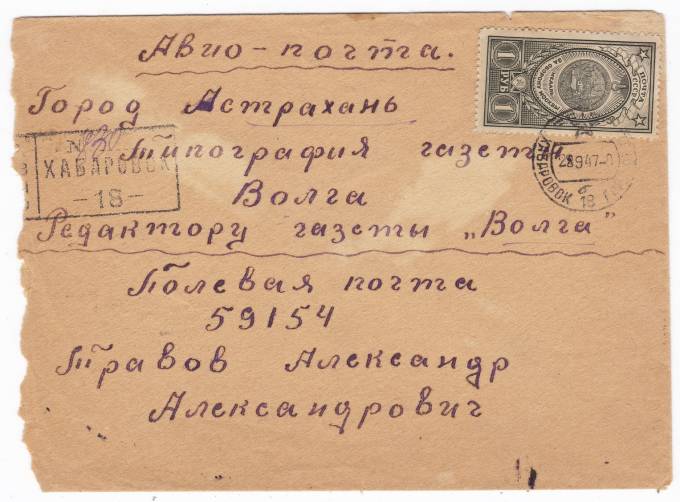 Авио-почта.
Город Астрахань
Типография газеты
Волга
Редактору газеты „Волга”
Полевая почта
59154
Травов Александр
Александрович
ХАБАРОВСК
-18-
ПОЧТА
СССР
1 РУБ 1
28947
ХАБАРОВСК
18